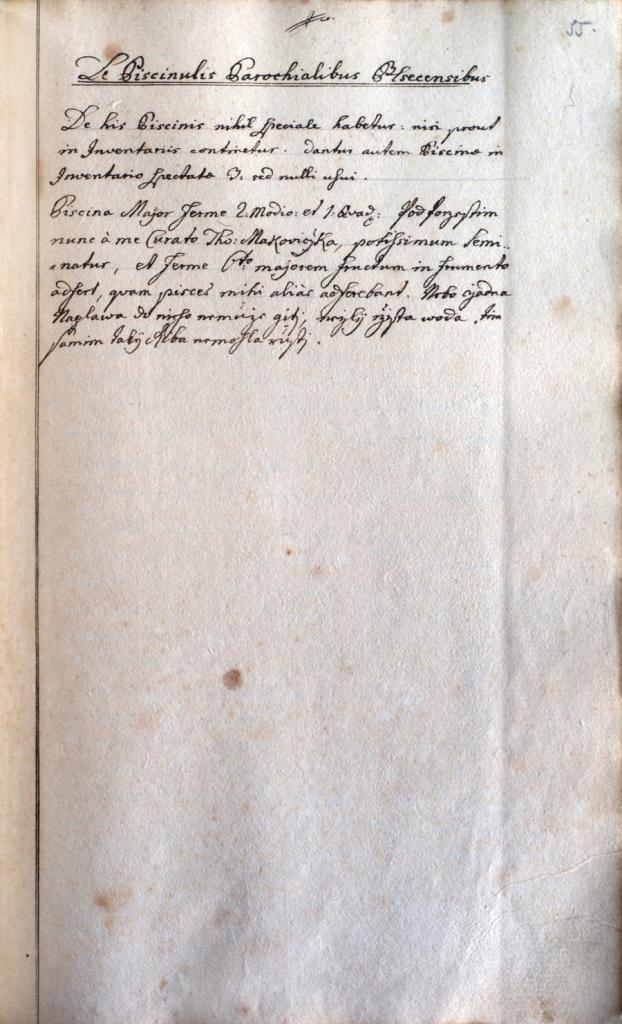 55.
De Piscinulis Parochialibus Plsecensibus
De his Piscinis nihil speciale habetur: nisi prout
in Inventariis continetur. dantur autem Piscinæ in
Inventario spectatæ 3. sed nulli usui.
Piscina Major ferme 2. Modio: et 1. Quad:
nunc à me Curato Tho: Makovicžka, potissimum semi-
natur, et ferme majorem fructum in frumento
adfert, quam pisces mihi aliàs adferebant. Nebo žjadna
Naplawa do nicho nemůže gitj, čzista woda, tim
samim taky Riba nemohla růstj.